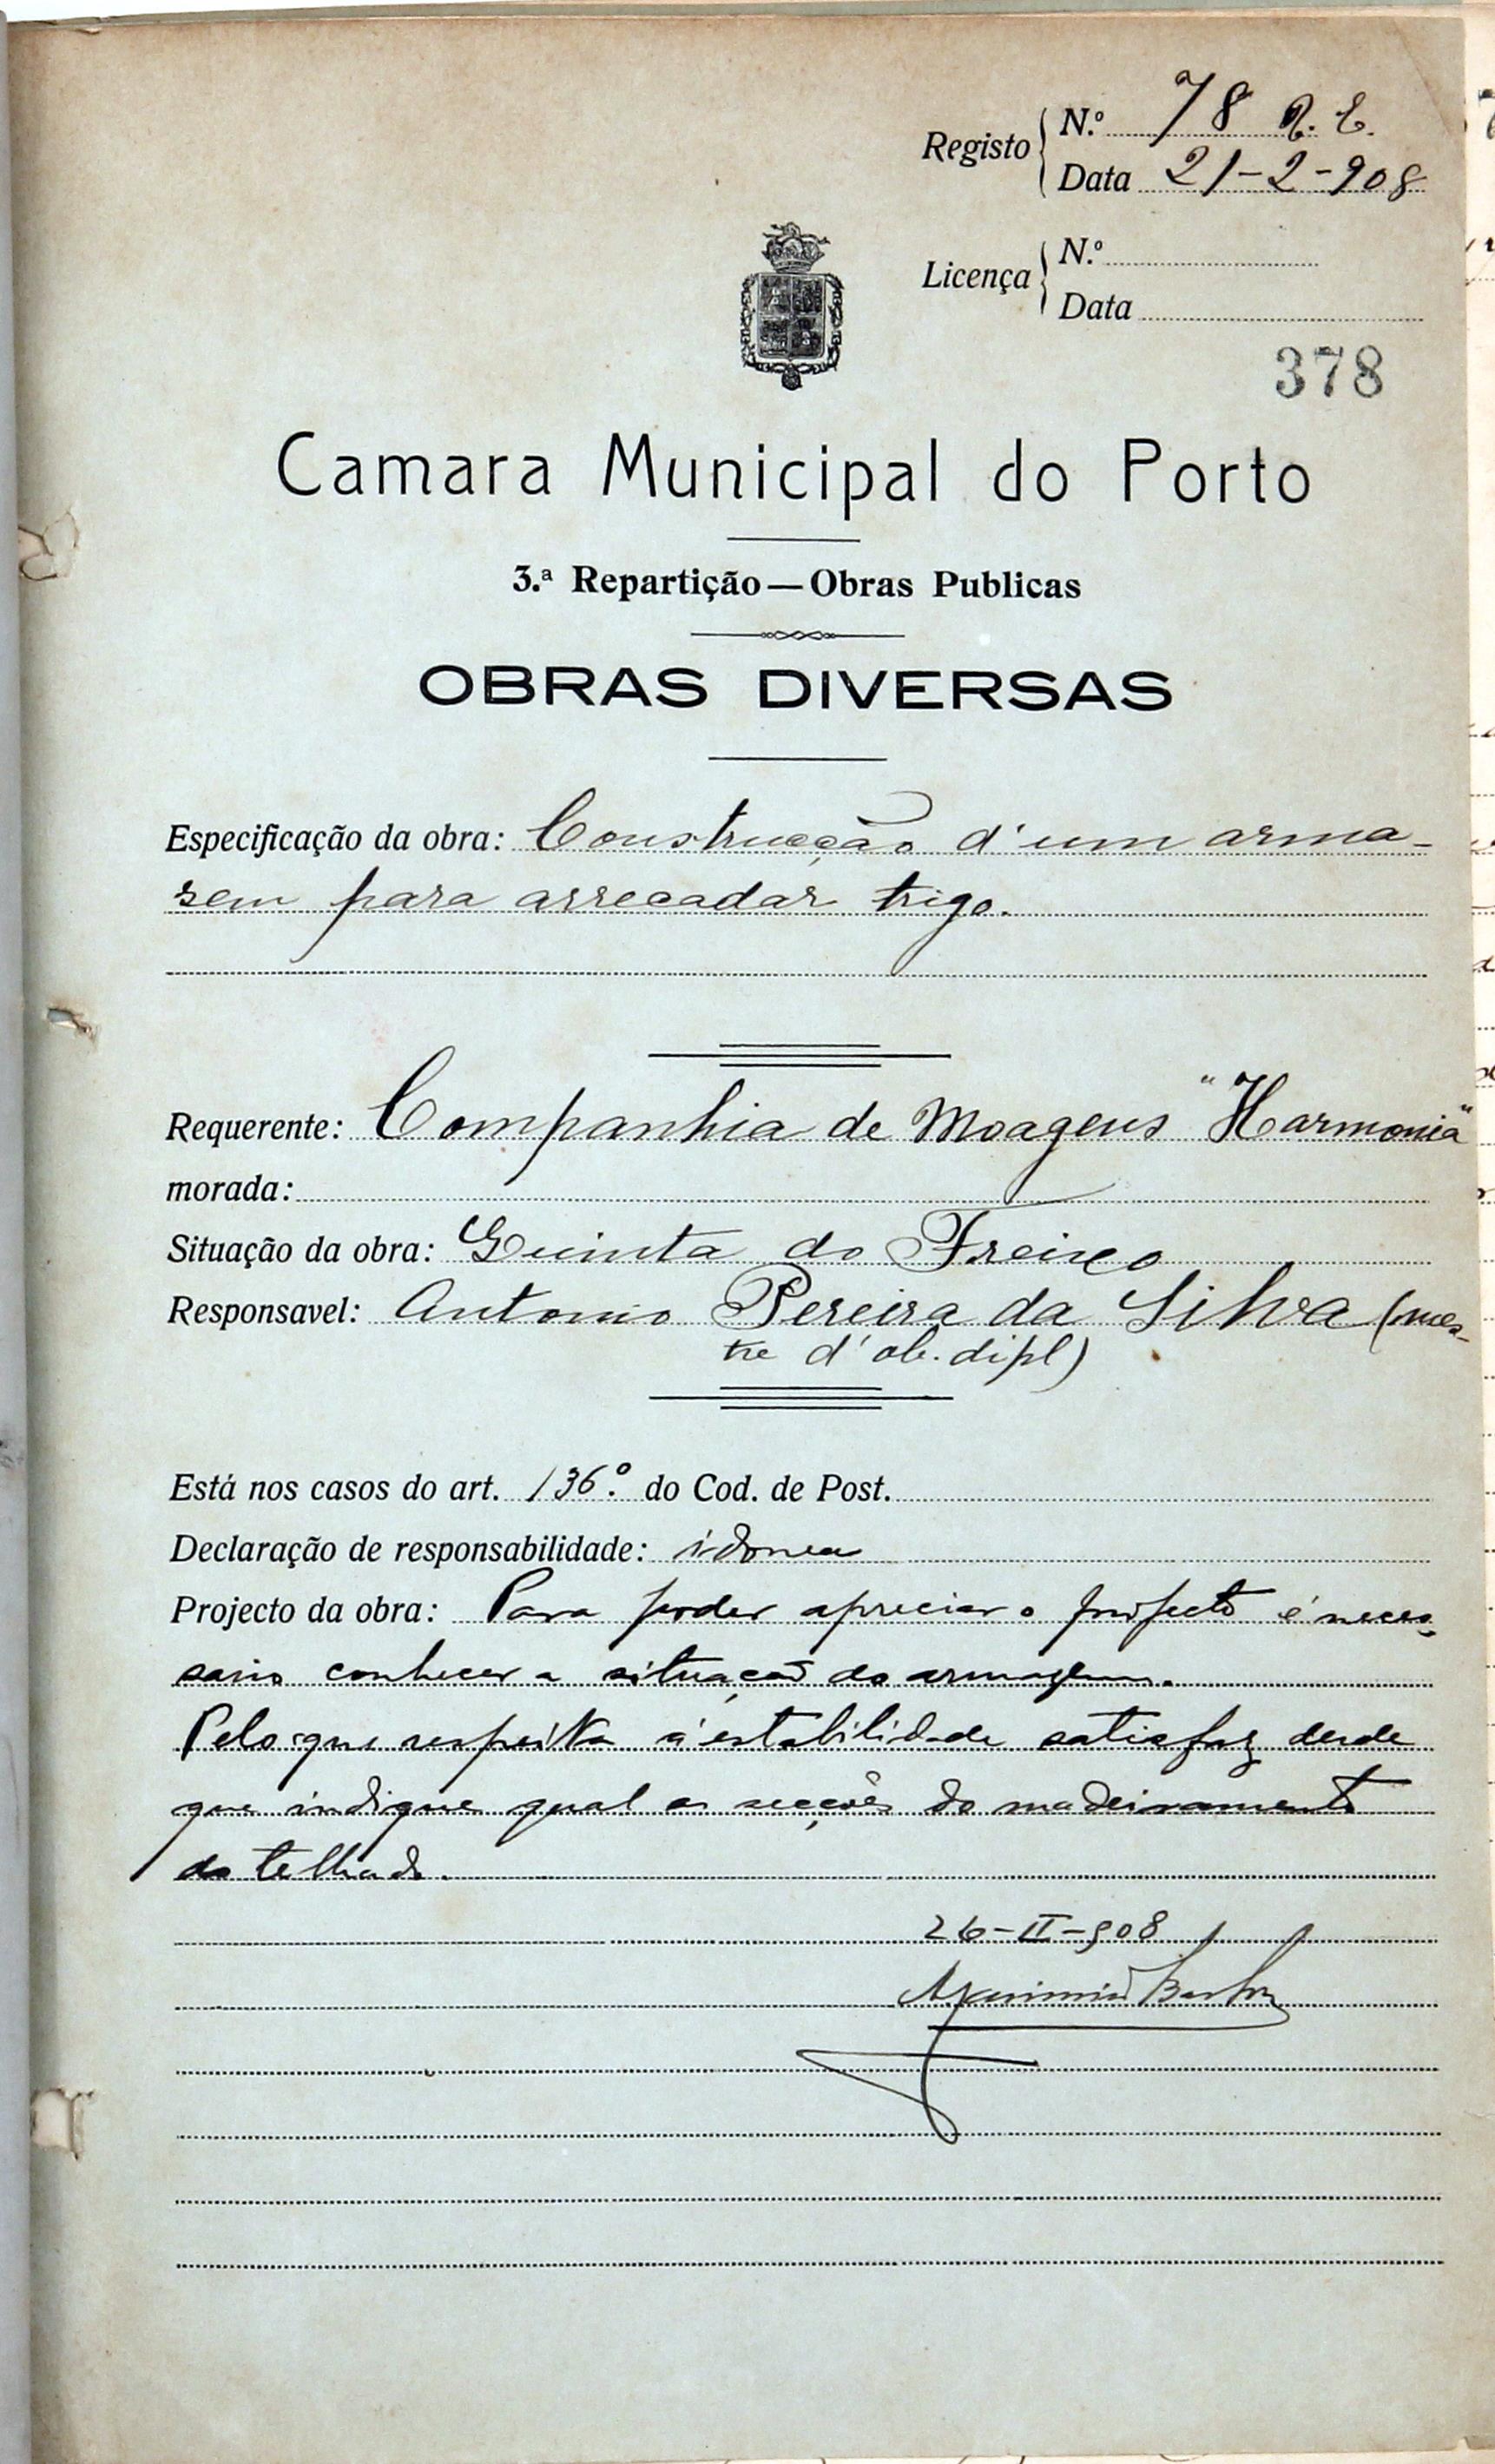 Registo N.º 78 R. E.
Data 21-2-908
Licença N.º
Data
378
Camara Municipal do Porto
3.ª Repartição — Obras Publicas
OBRAS DIVERSAS
Especificação da obra: Construcção d'um arma-
sem para arrecadar trigo.
Requerente: Companhia de Moagens "Harmonia"
morada:
Situação da obra: Quinta do Freixo
Responsavel: Antonio Pereira da Silva (mes-
tre d'ob. dipl)
Está nos casos do art. 136.º do Cod. de Post.
Declaração de responsabilidade: idonea
Projecto da obra: Para poder apreciar o projecto é neces-
sario conhecer a situação do armazem.
Pelo que respeita á estabilidade satisfaz desde
que indique qual as secções do madeiramento
do telhado.
26-II-908